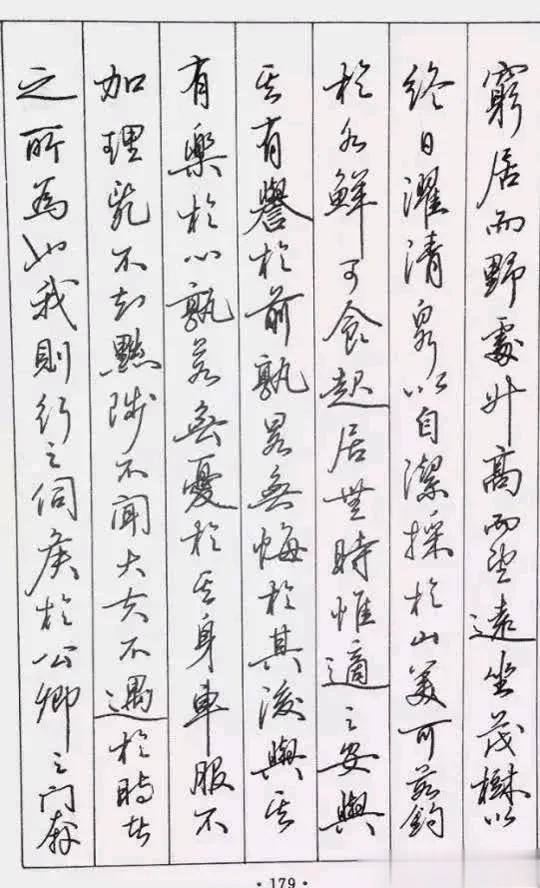 窮居而野處升高而望遠坐茂樹以
終日濯清泉以自潔採於山美可茹釣
於水鮮可食起居無時惟適之安與
其有譽於前孰若無毀於其後與其
有樂於心孰若無憂於其身車服不
加理亂不知黜陟不聞大丈夫不遇於時者
之所為也我則行之伺候於公卿之門奔
·179·